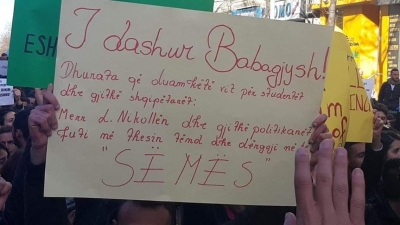 ESH
I dashur Babagjysh!
Dhurata që duam këtë vit për studentët
dhe gjithë shqipëtarët:
Merr L. Nikollën dhe gjithë politikanët
futi në thesin tënd dhe dërgoji në të
"SËMËS"